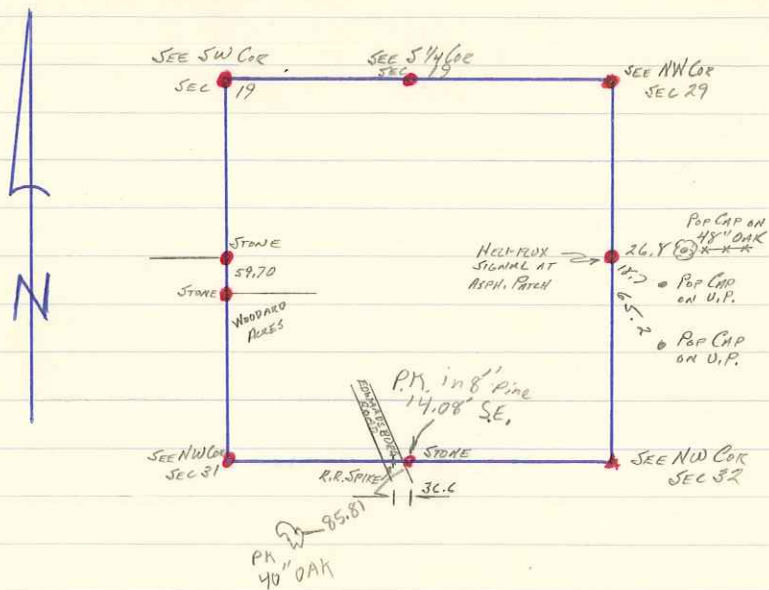 SEE SW COR
SEC 19
SEE S 1/4 COR
SEC 19
SEE NW COR
SEC 29
N
STONE
59.70
STONE
WOODARD
ACRES
HELI-FLUX
SIGNAL AT
ASPH. PATCH
26.8
POP CAP ON
48" OAK
18.7
POP CAP
ON U.P.
65.2
POP CAP
ON U.P.
P.K. in 8" Pine
14.08' S.E.
ROAD
SEE NW COR
SEC 31
R.R. SPIKE
STONE
36.6
SEE NW COR
SEC 32
85.81
PK
40" OAK